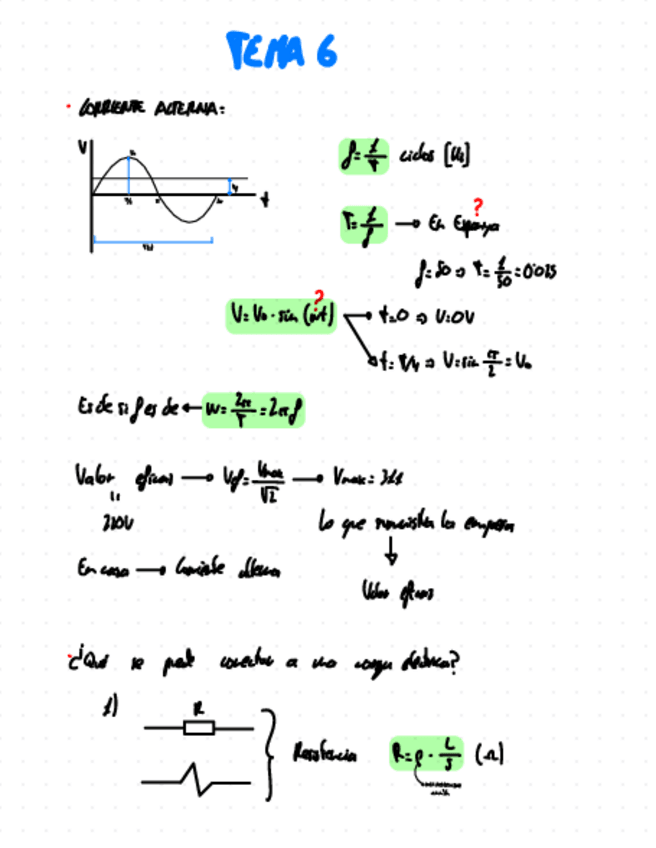 TEMA 6
· CORRIENTE ALTERNA:
V
t
f = 1/T ciclos [Hz]
?
T = 1/f → En Espanya
f = 50 ⇒ T = 1/50 = 0'02s
?
V = V₀ · sin (wt) → t=0 ⇒ V=0V
t = T/4 ⇒ V = sin π/2 = V₀
Es de si f es de ← w = 2π/T = 2πf
Valor eficaz → Vef = Vmax/√2 → Vmax = 311
"
220V
Lo que suministra la empresa
↓
Valor eficaz
En casa → Corriente alterna
·¿Qué se puede conectar a una carga eléctrica?
1)
R
Resistencia
R = ρ · L/S (Ω)